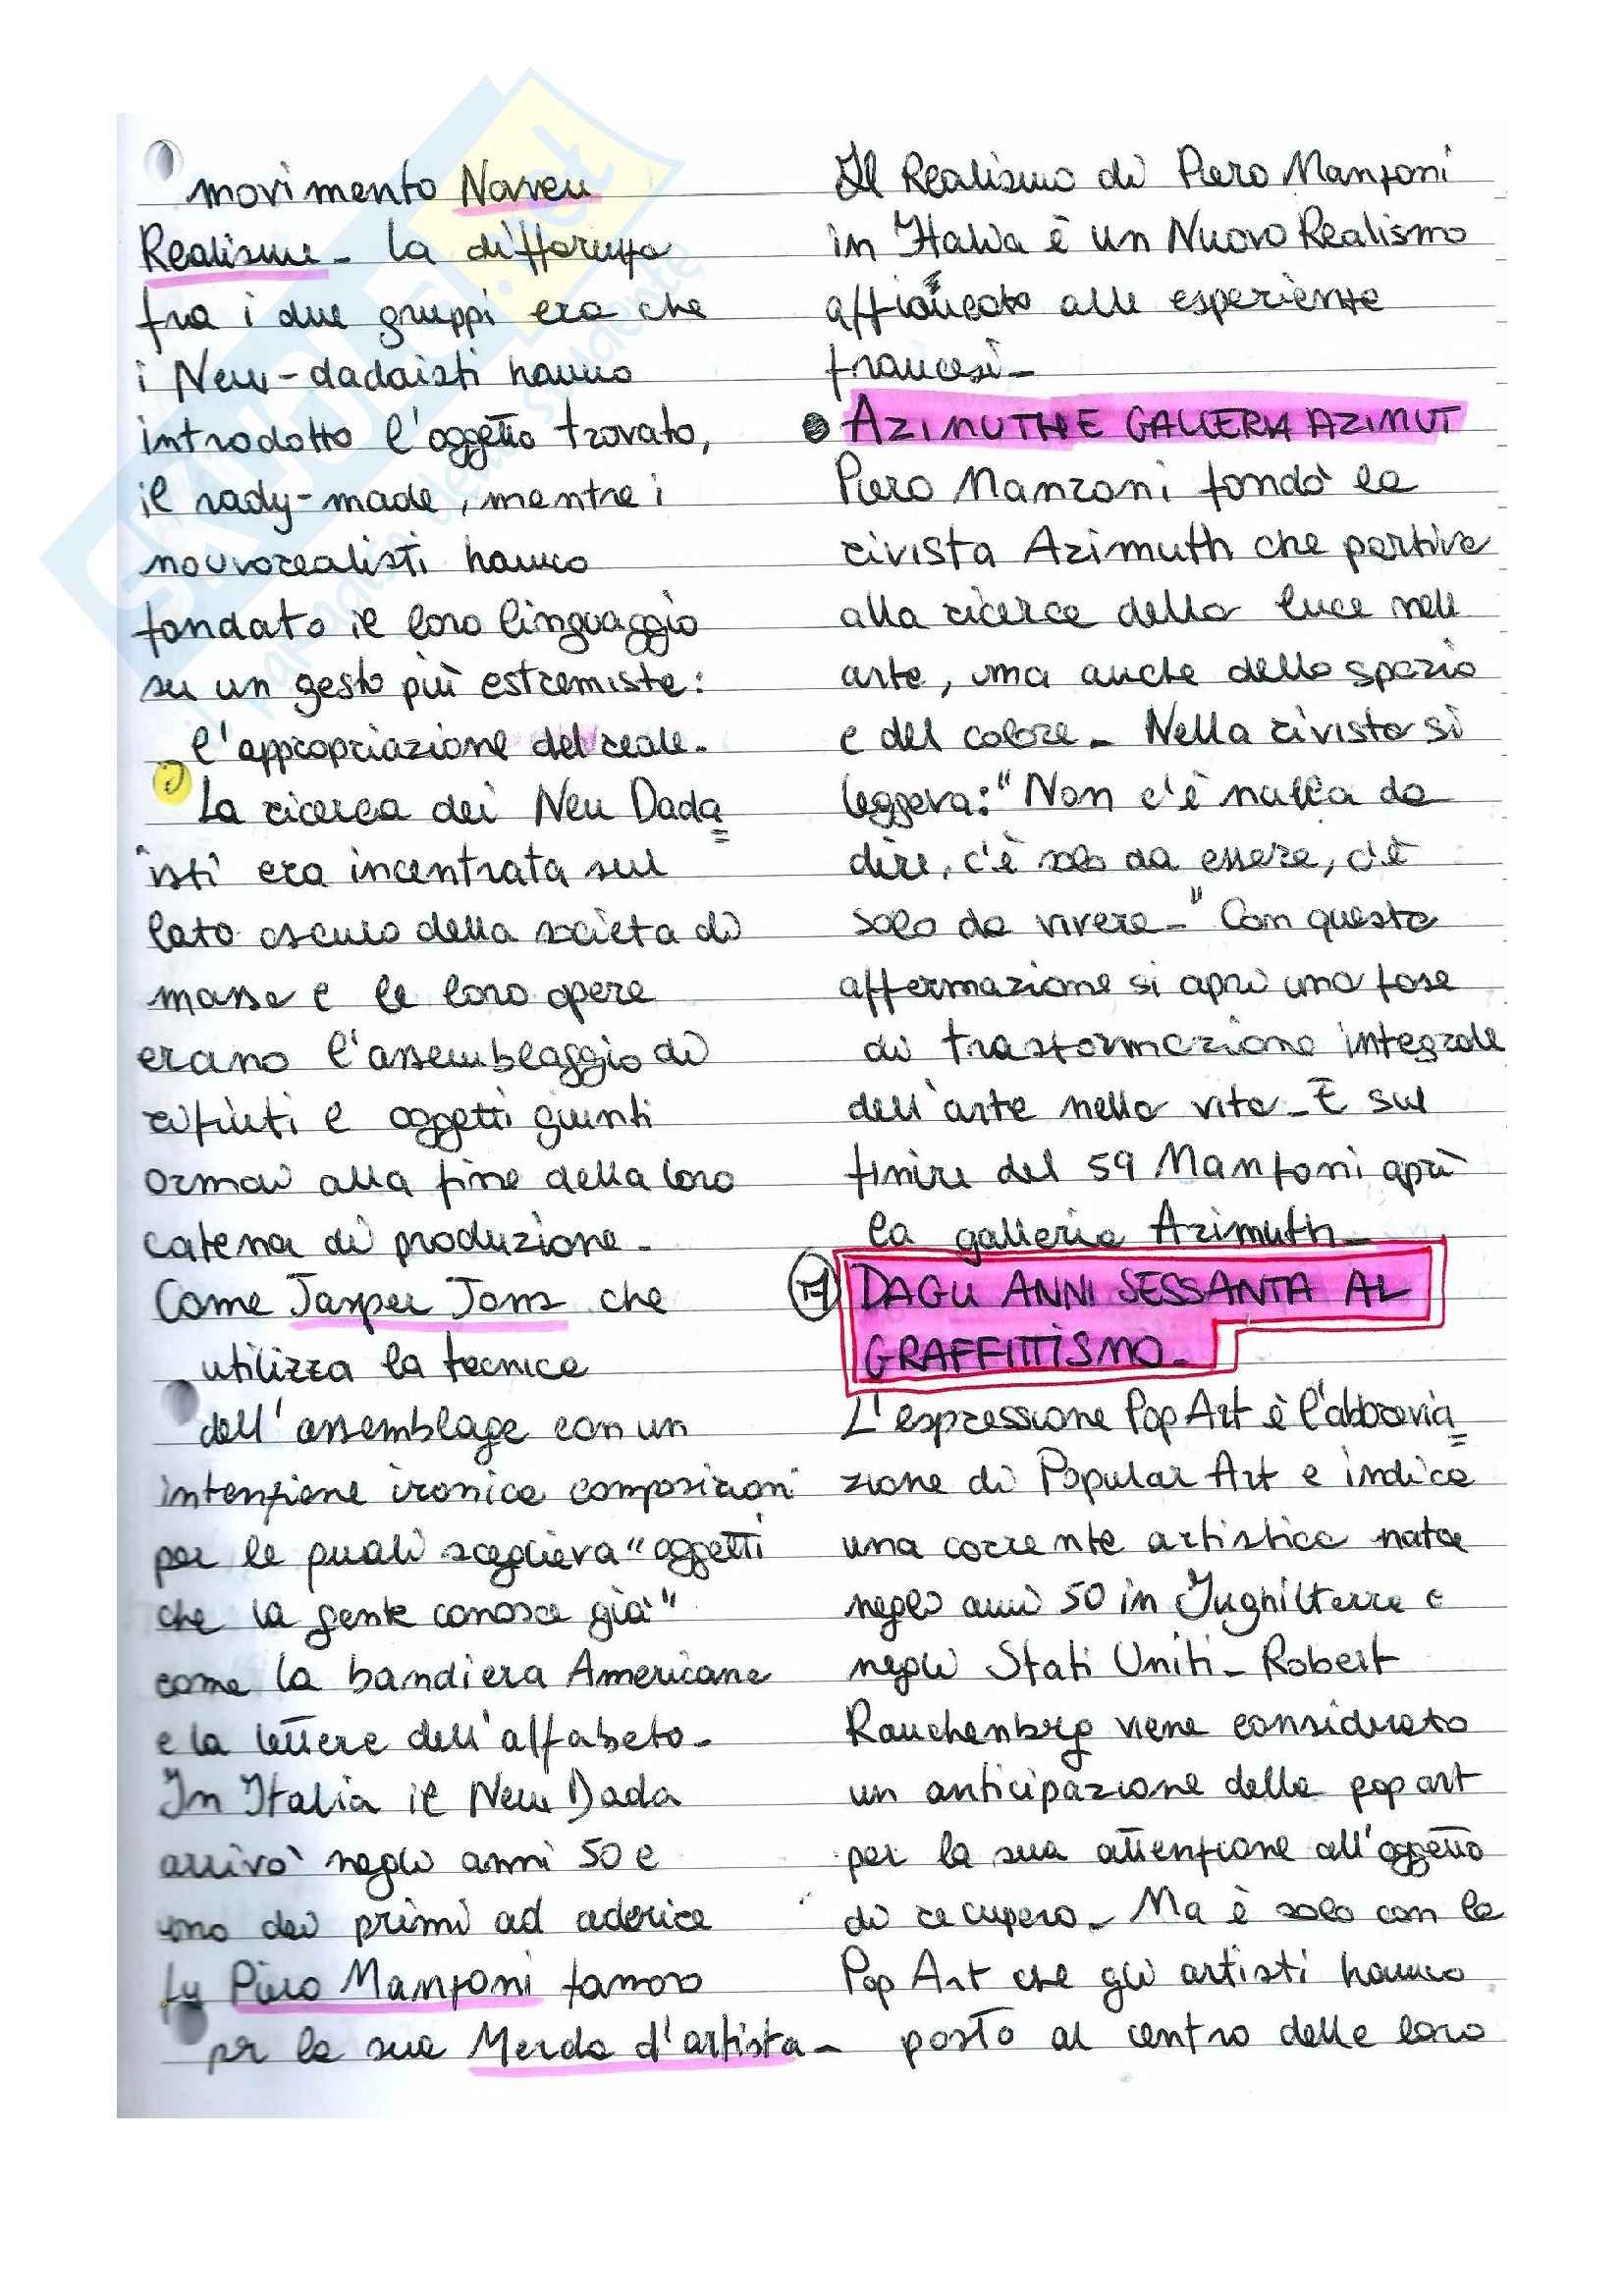 movimento Noveu
Realisme - la differenza
fra i due gruppi era che
i New-dadaisti hanno
introdotto l'oggetto trovato,
il rady-made, mentre i
nouvorealisti hanno
fondato il loro linguaggio
su un gesto più estremista:
l'appropriazione del reale.
La ricerca dei Neu Dada=
isti era incentrata sul
lato oscuro della societa di
massa e le loro opere
erano l'assemblaggio di
rifiuti e oggetti giunti
ormai alla fine della loro
catena di produzione -
Come Jasper Jons che
utilizza la tecnica
dell'assemblage con un
intenzione ironica composizioni
per le quali sceglieva "oggetti
che la gente conosce già"
come la bandiera Americana
e la lettere dell'alfabeto -
In Italia il New Dada
arrivò negli anni 50 e
uno dei primi ad aderire
fu Piero Manzoni famoso
pr la sua Merda d'artista -
Il Realismo di Piero Manzoni
in Italia è un Nuovo Realismo
affiancato alle esperienze
francesi -
AZIMUTH E GALLERIA AZIMUT
Piero Manzoni fondò la
rivista Azimuth che partiva
alla ricerca della luce nell
arte, ma anche dello spazio
e del colore - Nella rivista si
leggeva: "Non c'è nulla da
dire, c'è solo da essere, c'è
solo da vivere -" Con questa
affermazione si aprì una fase
di trasformazione integrale
dell'arte nella vita - E sul
finire del 59 Manzoni aprì
la galleria Azimuth -
17 DAGLI ANNI SESSANTA AL
GRAFFITTISMO -
L'espressione Pop Art è l'abbrevia=
zione di Popular Art e indica
una corrente artistica nata
negli anni 50 in Inghilterra e
negli Stati Uniti - Robert
Rauchenbrg viene considerato
un anticipazione della pop art
per la sua attenzione all'oggetto
di recupero - Ma è solo con la
Pop Art che gli artisti hanno
posto al centro delle loro
SKUOLA.net